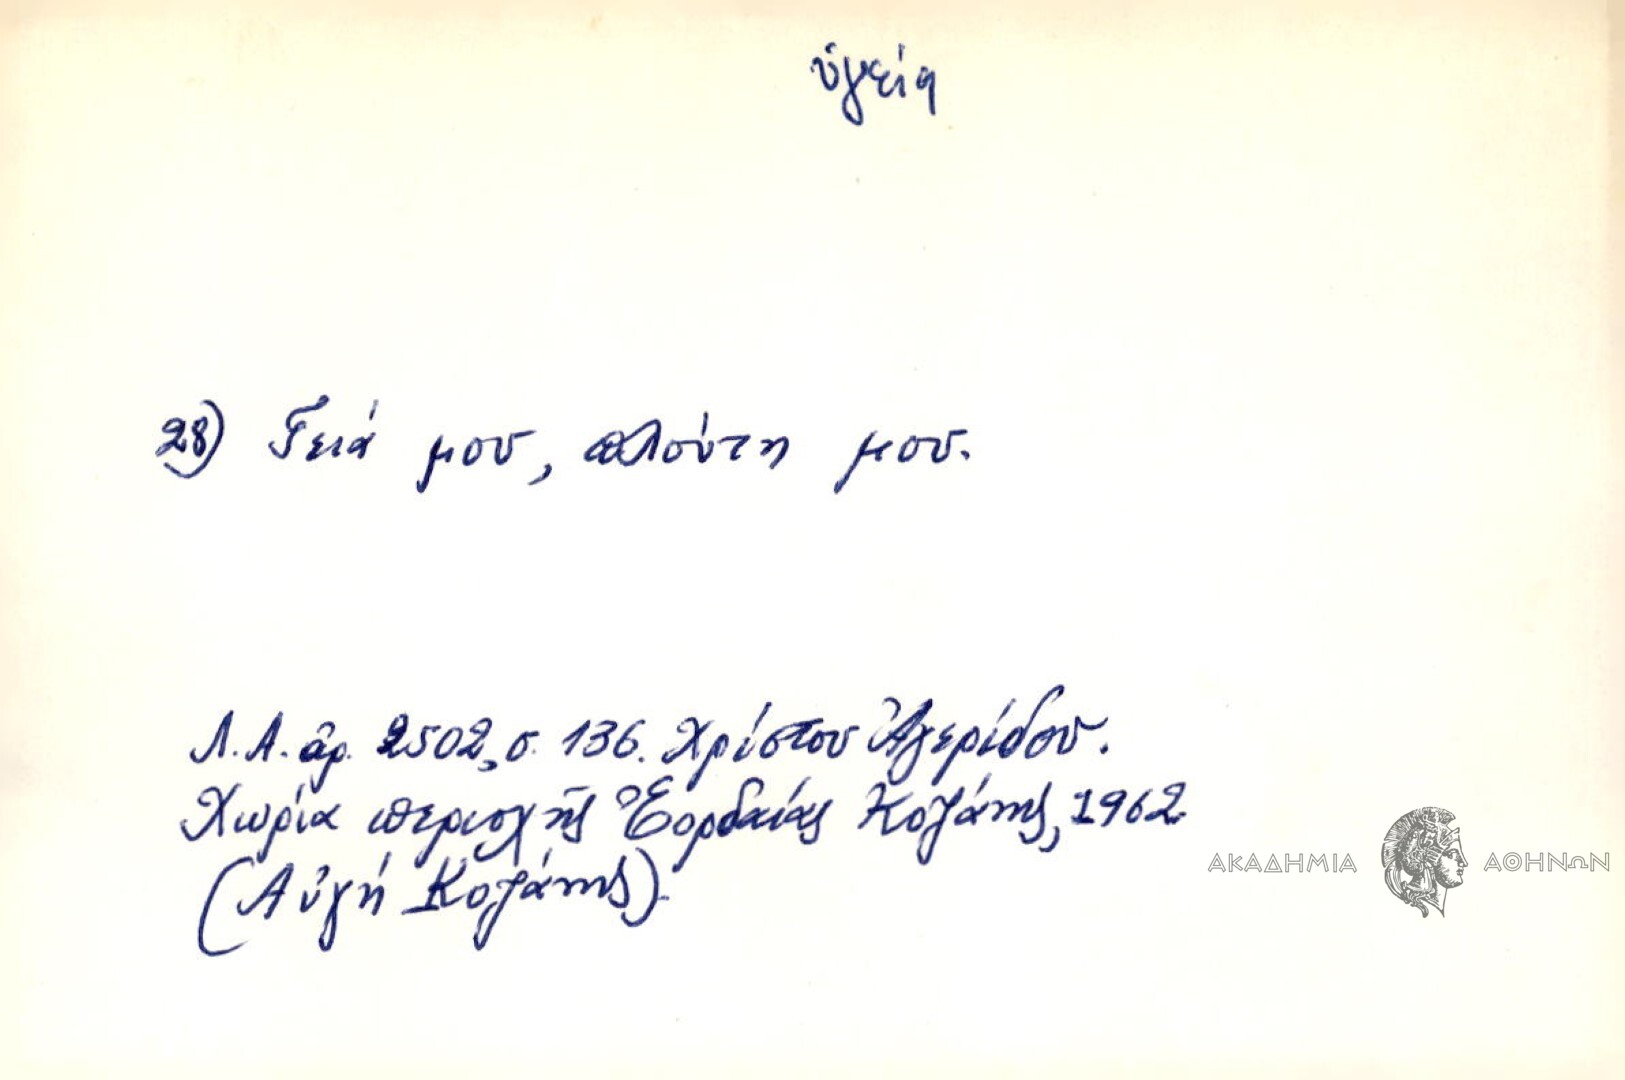 ὑγεία
28) Γειά μου, πλούτη μου.
Λ.Α. ἀρ. 2502, σ. 136. Χρίστου Ἀγερίδου.
Χωρία περιοχῆς Ἐορδαίας Κοζάνης, 1962
(Αὐγή Κοζάνης).
ΑΚΑΔΗΜΙΑ ΑΘΗΝΩΝ